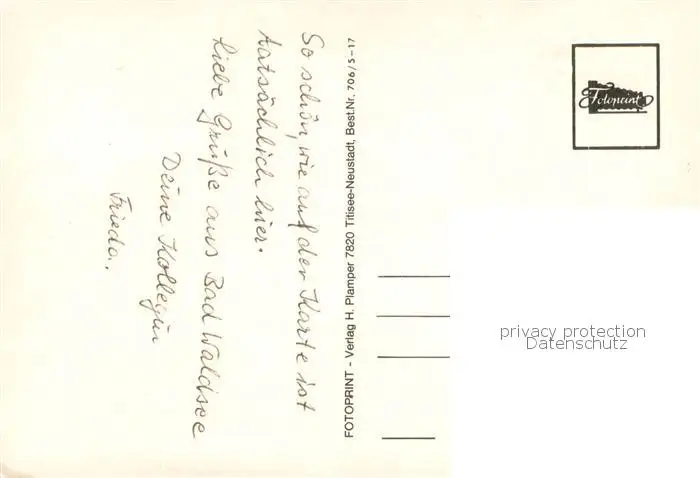 So schön, wie auf der Karte ist
tatsächlich hier.
Liebe Grüße aus Bad Waldsee
Deine Kollegin
Frieda.
FOTOPRINT - Verlag H. Plamper 7820 Titisee-Neustadt, Best.Nr. 706/5-17
Fotoprint
privacy protection
Datenschutz